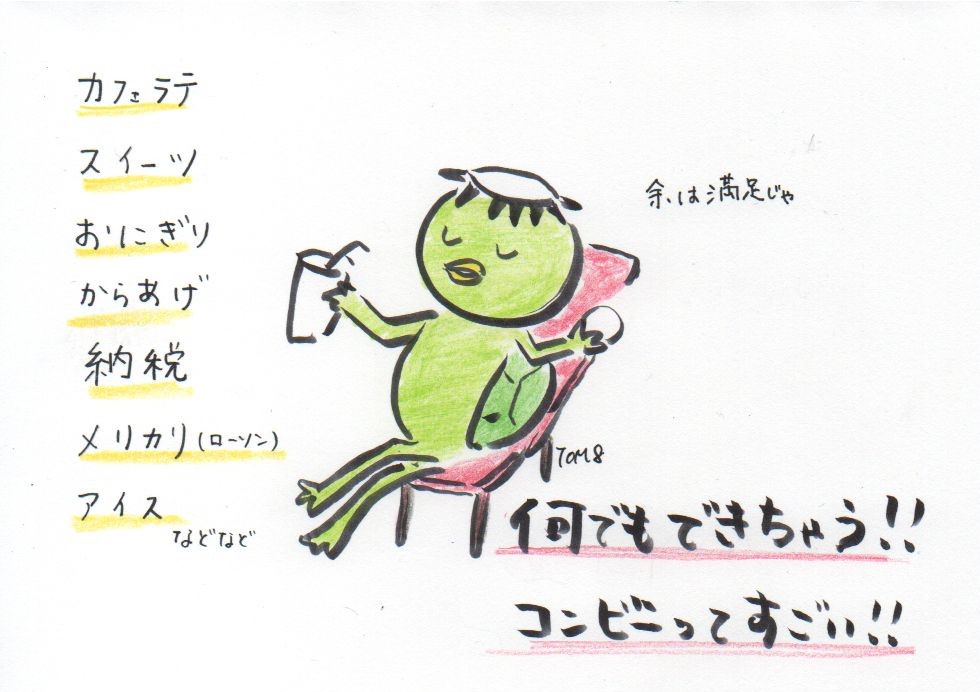 カフェラテ
スイーツ
おにぎり
からあげ
納税
メリカリ(ローソン)
アイス
などなど
余は満足じゃ
TOM8
何でもできちゃう!!
コンビニってすごい!!